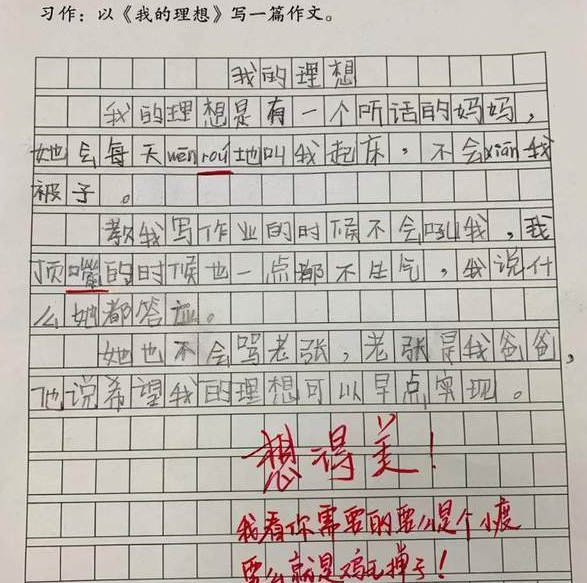 习作：以《我的理想》写一篇作文。
我的理想
我的理想是有一个听话的妈妈，
她会每天wēn roú地叫我起床，不会xiān我
被子。
教我写作业的时候不会吼我，我
顶嘴的时候也一点都不生气，我说什
么她都答应。
她也不会骂老张，老张是我爸爸，
他说希望我的理想可以早点实现。
想得美！
我看你需要的要么是个小鹿
要么就是鸡毛掸子！